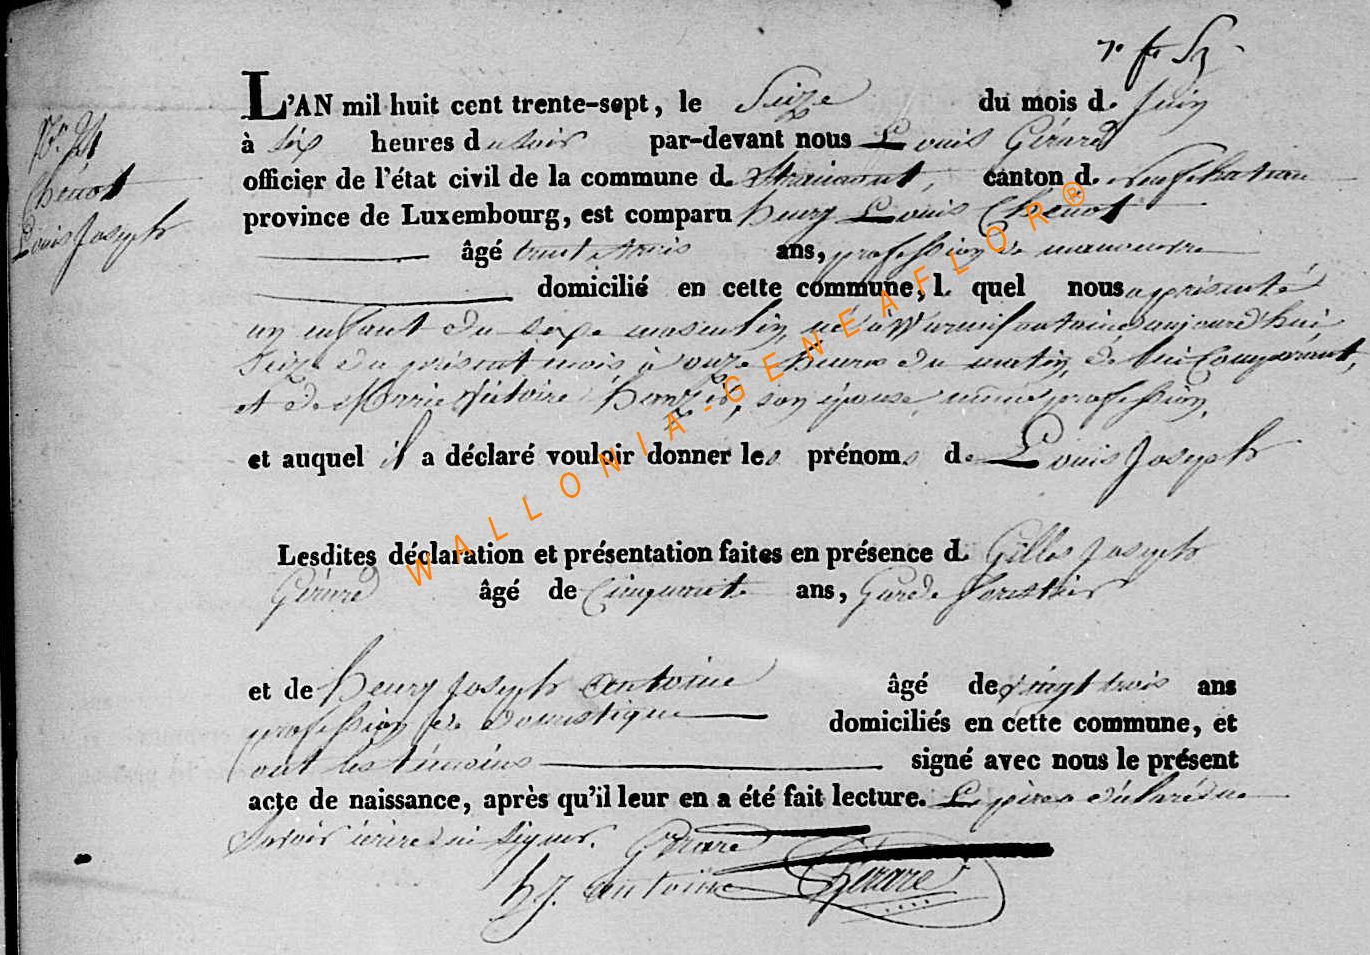 7e ft Sz
L'AN mil huit cent trente-sept, le Seize du mois de Juin
à six heures du soir par-devant nous Louis Gérard
officier de l'état civil de la commune de Straimont, canton de Neufchateau
province de Luxembourg, est comparu henry Louis Chenot
âgé trente trois ans, profession de manoeuvre
domicilié en cette commune, le quel nous a présenté
un enfant du sexe masculin, né à Warmifontaine aujourd'hui
Seize du présent mois à onze heures du matin, de lui Comparant,
et de Marie Victoire son épouse, même profession,
et auquel il a déclaré vouloir donner les prénoms de Louis Joseph
Lesdites déclaration et présentation faites en présence de Gilles Joseph
Gérard âgé de Cinquante ans, Garde forestier
et de henry Joseph antoine âgé de vingt trois ans
profession de domestique domiciliés en cette commune, et
ont les témoins signé avec nous le présent
acte de naissance, après qu'il leur en a été fait lecture. Le père a déclaré ne
Savoir écrire ni signer. Gerard
h J. antoine Gérard
No 21
Chénot
Louis Joseph
WALLONIA-GENEAFLOR®